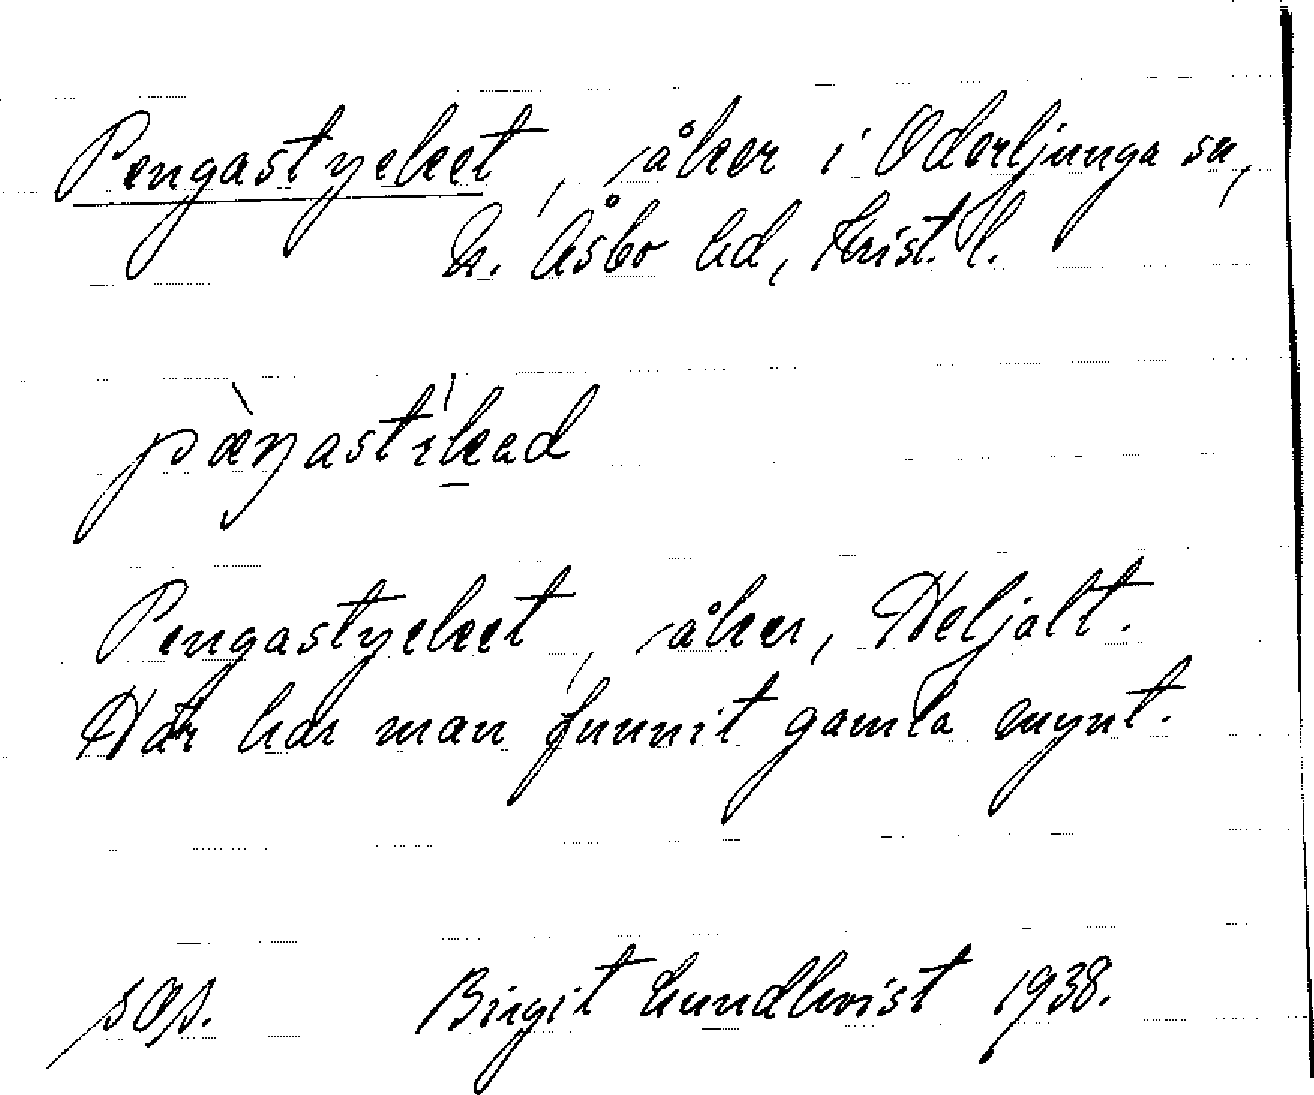 Pengastycket, åker i Oderljunga sn,
N. Åsbo hd, Krist. l.
pæ̀ŋastìkad
Pengastycket, åker, Heljalt.
Här har man funnit gamla mynt.
Birgit Lundkvist 1938.